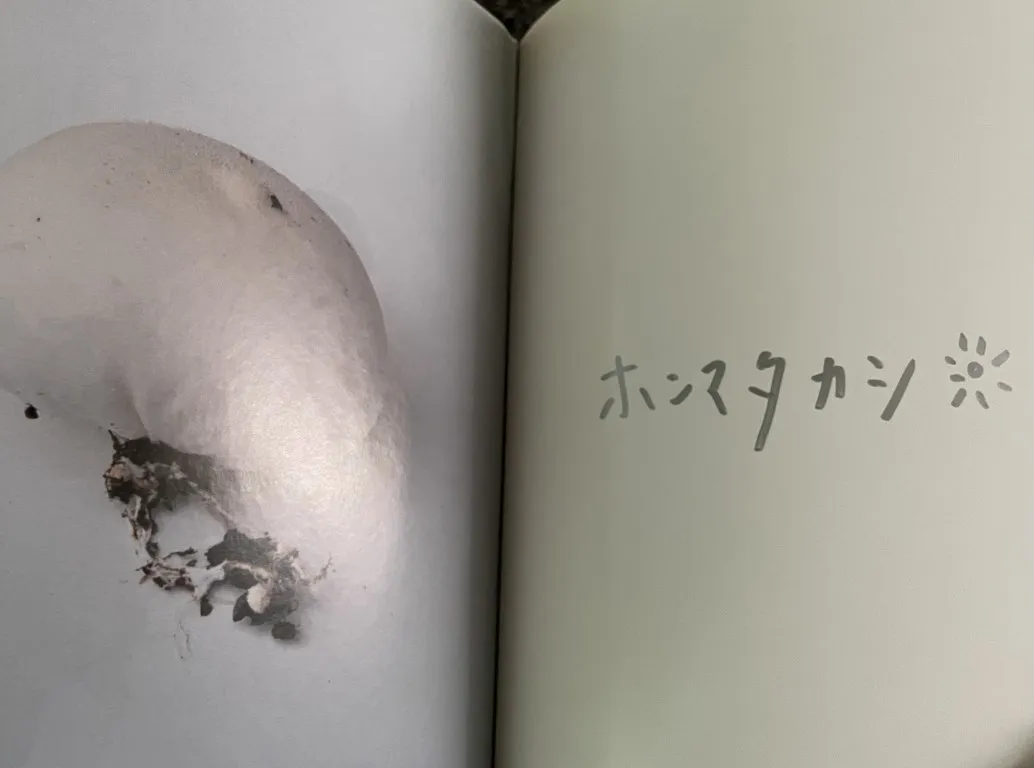 ホンマタカシ